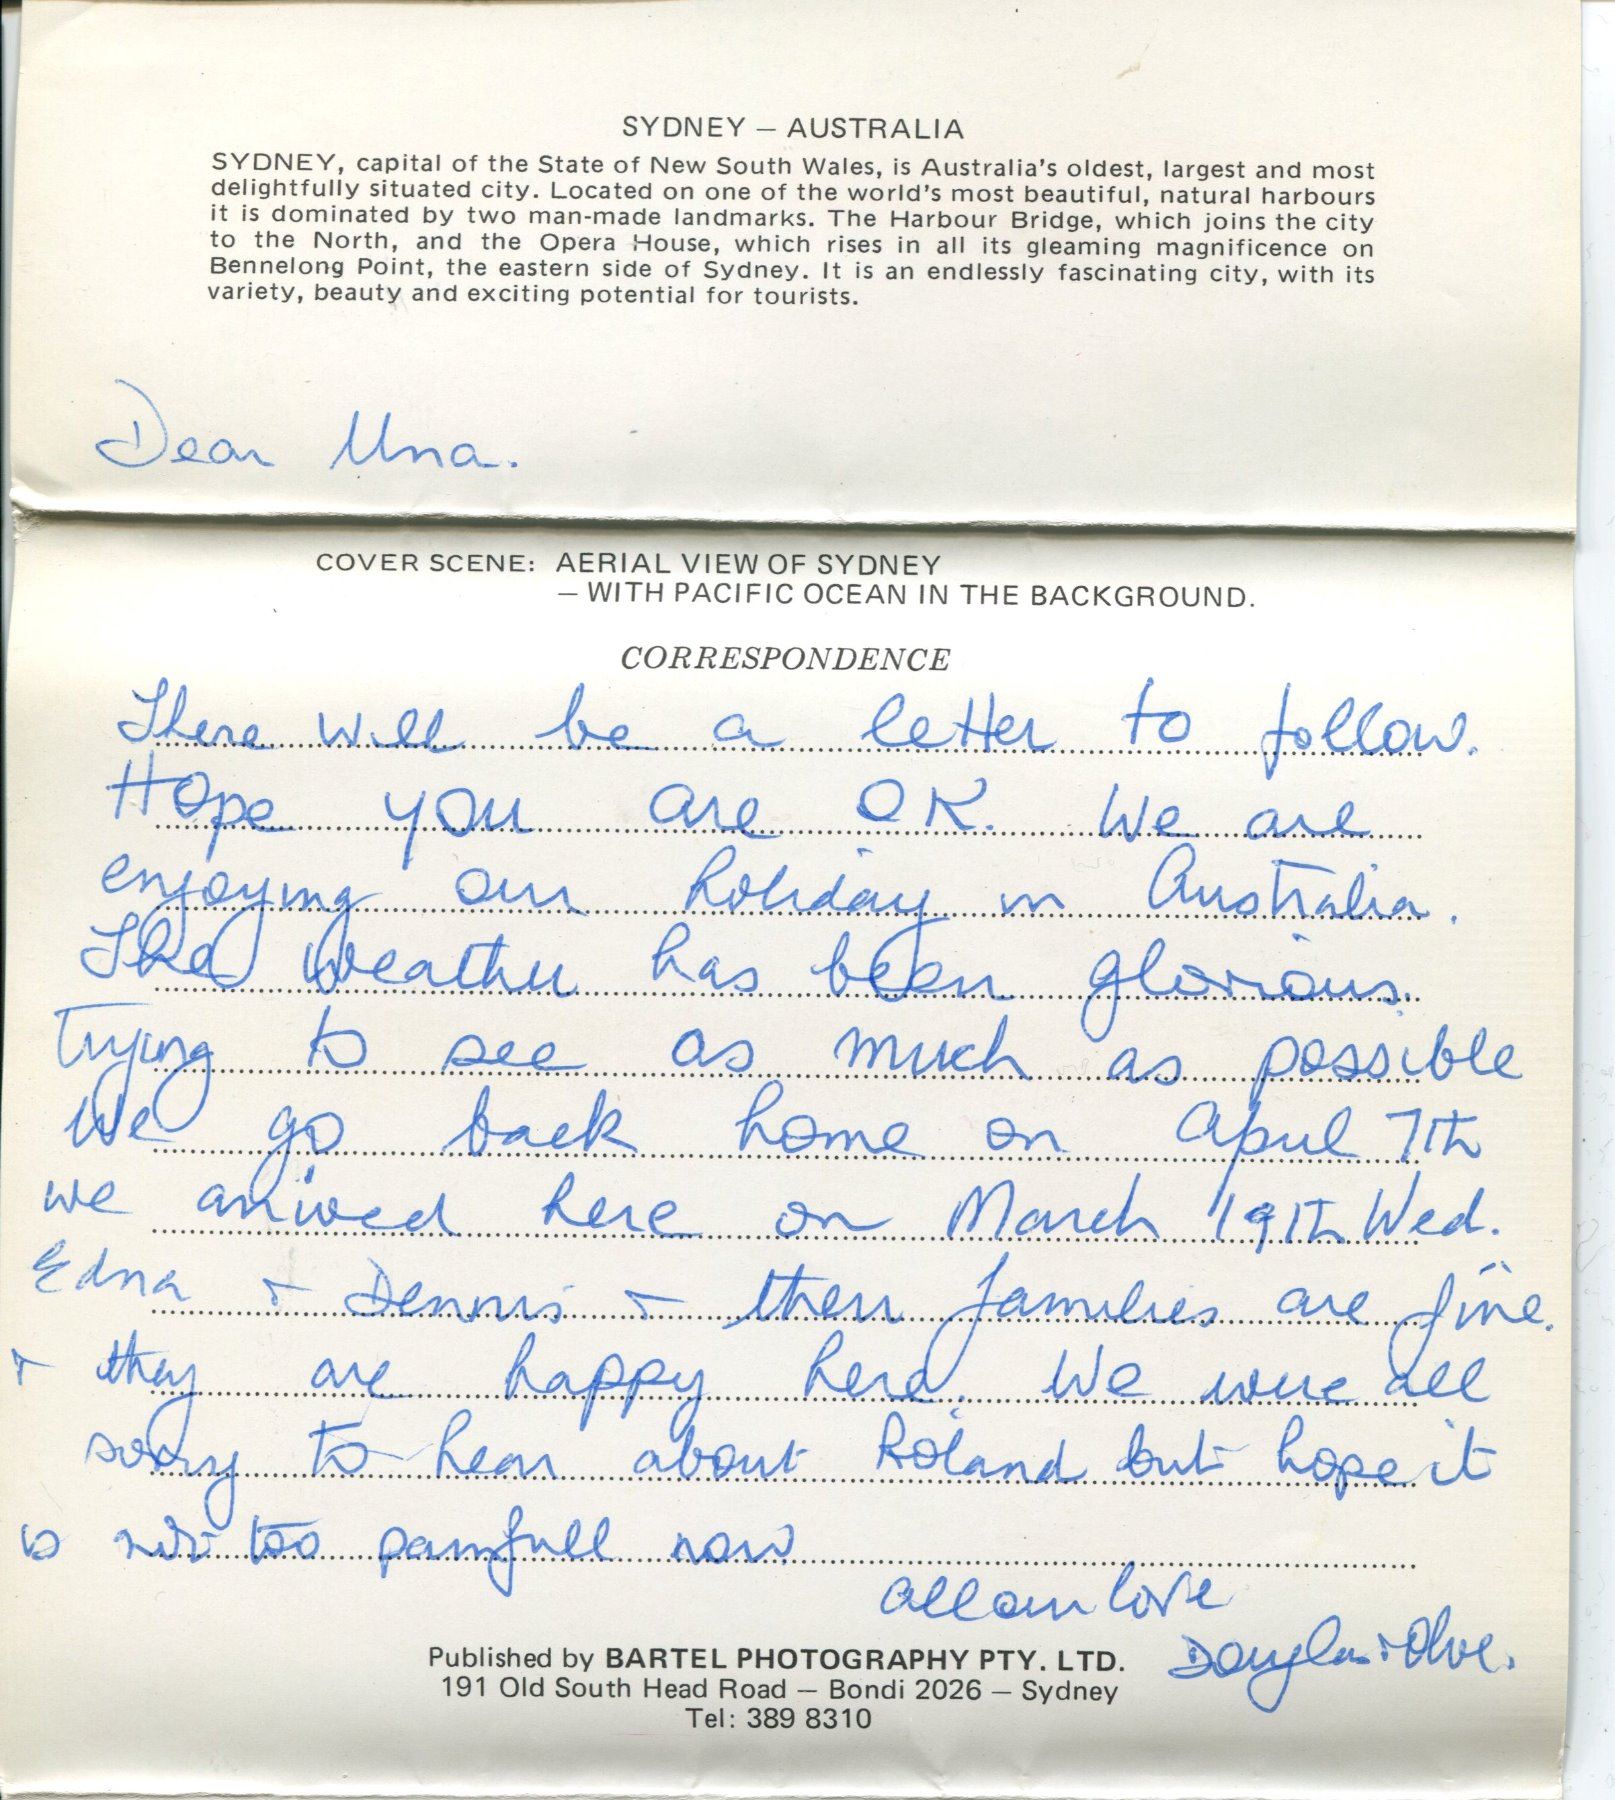 SYDNEY – AUSTRALIA
SYDNEY, capital of the State of New South Wales, is Australia's oldest, largest and most
delightfully situated city. Located on one of the world's most beautiful, natural harbours
it is dominated by two man-made landmarks. The Harbour Bridge, which joins the city
to the North, and the Opera House, which rises in all its gleaming magnificence on
Bennelong Point, the eastern side of Sydney. It is an endlessly fascinating city, with its
variety, beauty and exciting potential for tourists.
Dear Una.
COVER SCENE: AERIAL VIEW OF SYDNEY
– WITH PACIFIC OCEAN IN THE BACKGROUND.
CORRESPONDENCE
There will be a letter to follow.
Hope you are OK. We are
enjoying our holiday in Australia.
The weather has been glorious.
Trying to see as much as possible
We go back home on April 7th
we arrived here on March 19th Wed.
Edna + Dennis + their families are fine.
+ they are happy here. We were all
sorry to hear about Roland but hope it
is not too painfull now
all our love
Douglas + Olive.
Published by BARTEL PHOTOGRAPHY PTY. LTD.
191 Old South Head Road – Bondi 2026 – Sydney
Tel: 389 8310